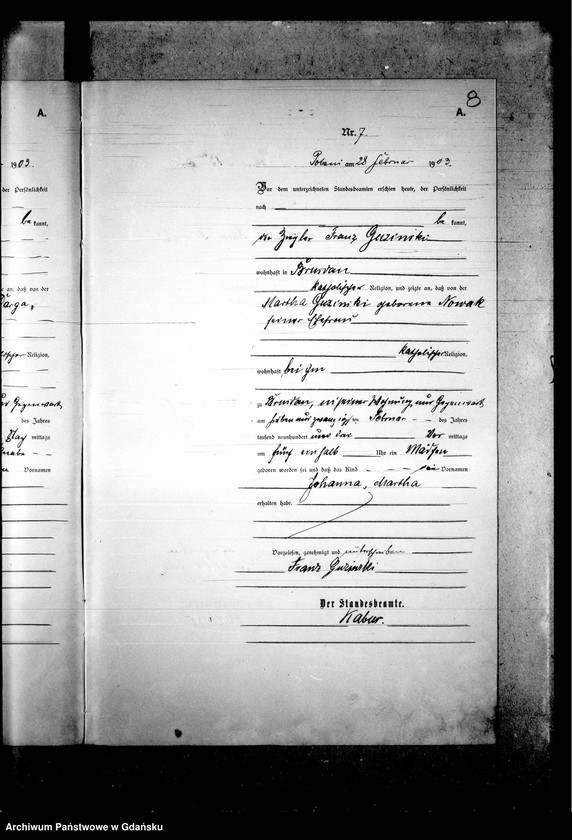 A.
1903.
der Persönlichkeit
be kannt,
te an, daß von der
Religion,
Gegenwart,
des Jahres
mittags
Vornamen
8
A.
Nr. 7
am 28 Februar 1903.
Vor dem unterzeichneten Standesbeamten erschien heute, der Persönlichkeit
nach
be kannt,
der Ziegler Franz Guzinski
wohnhaft in
katholischer Religion, und zeigte an, daß von der
Martha Guzinski geborene Nowak
seiner Ehefrau
katholischer Religion,
wohnhaft bei ihm
zu in seiner Wohnung, Gegenwart,
am sieben und zwanzigsten Februar des Jahres
tausend neunhundert und drei Vor mittags
um fünf einhalb Uhr ein Mädchen
geboren worden sei und daß das Kind die Vornamen
Johanna, Martha
erhalten habe.
Vorgelesen, genehmigt und unterschrieben
Franz Guzinski
Der Standesbeamte.
Archiwum Państwowe w Gdańsku